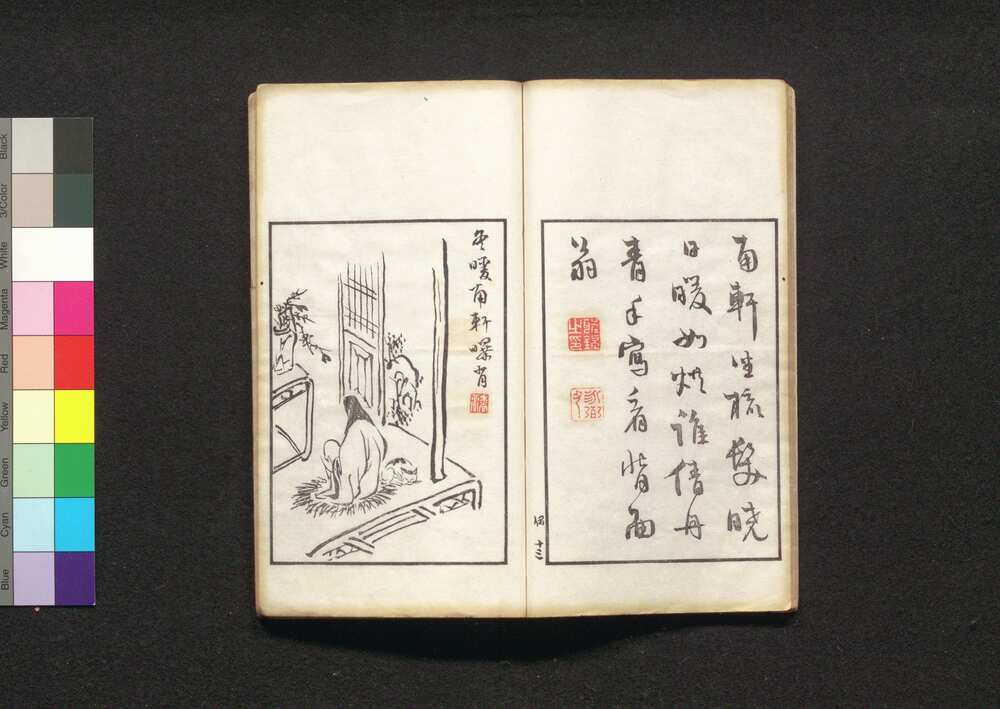 南軒坐梳髮曉
日暖如烘誰倩丹
青手寫看背面
翁
十三
冬暖南軒曝背
Black
3/Color
White
Magenta
Red
Yellow
Green
Cyan
Blue